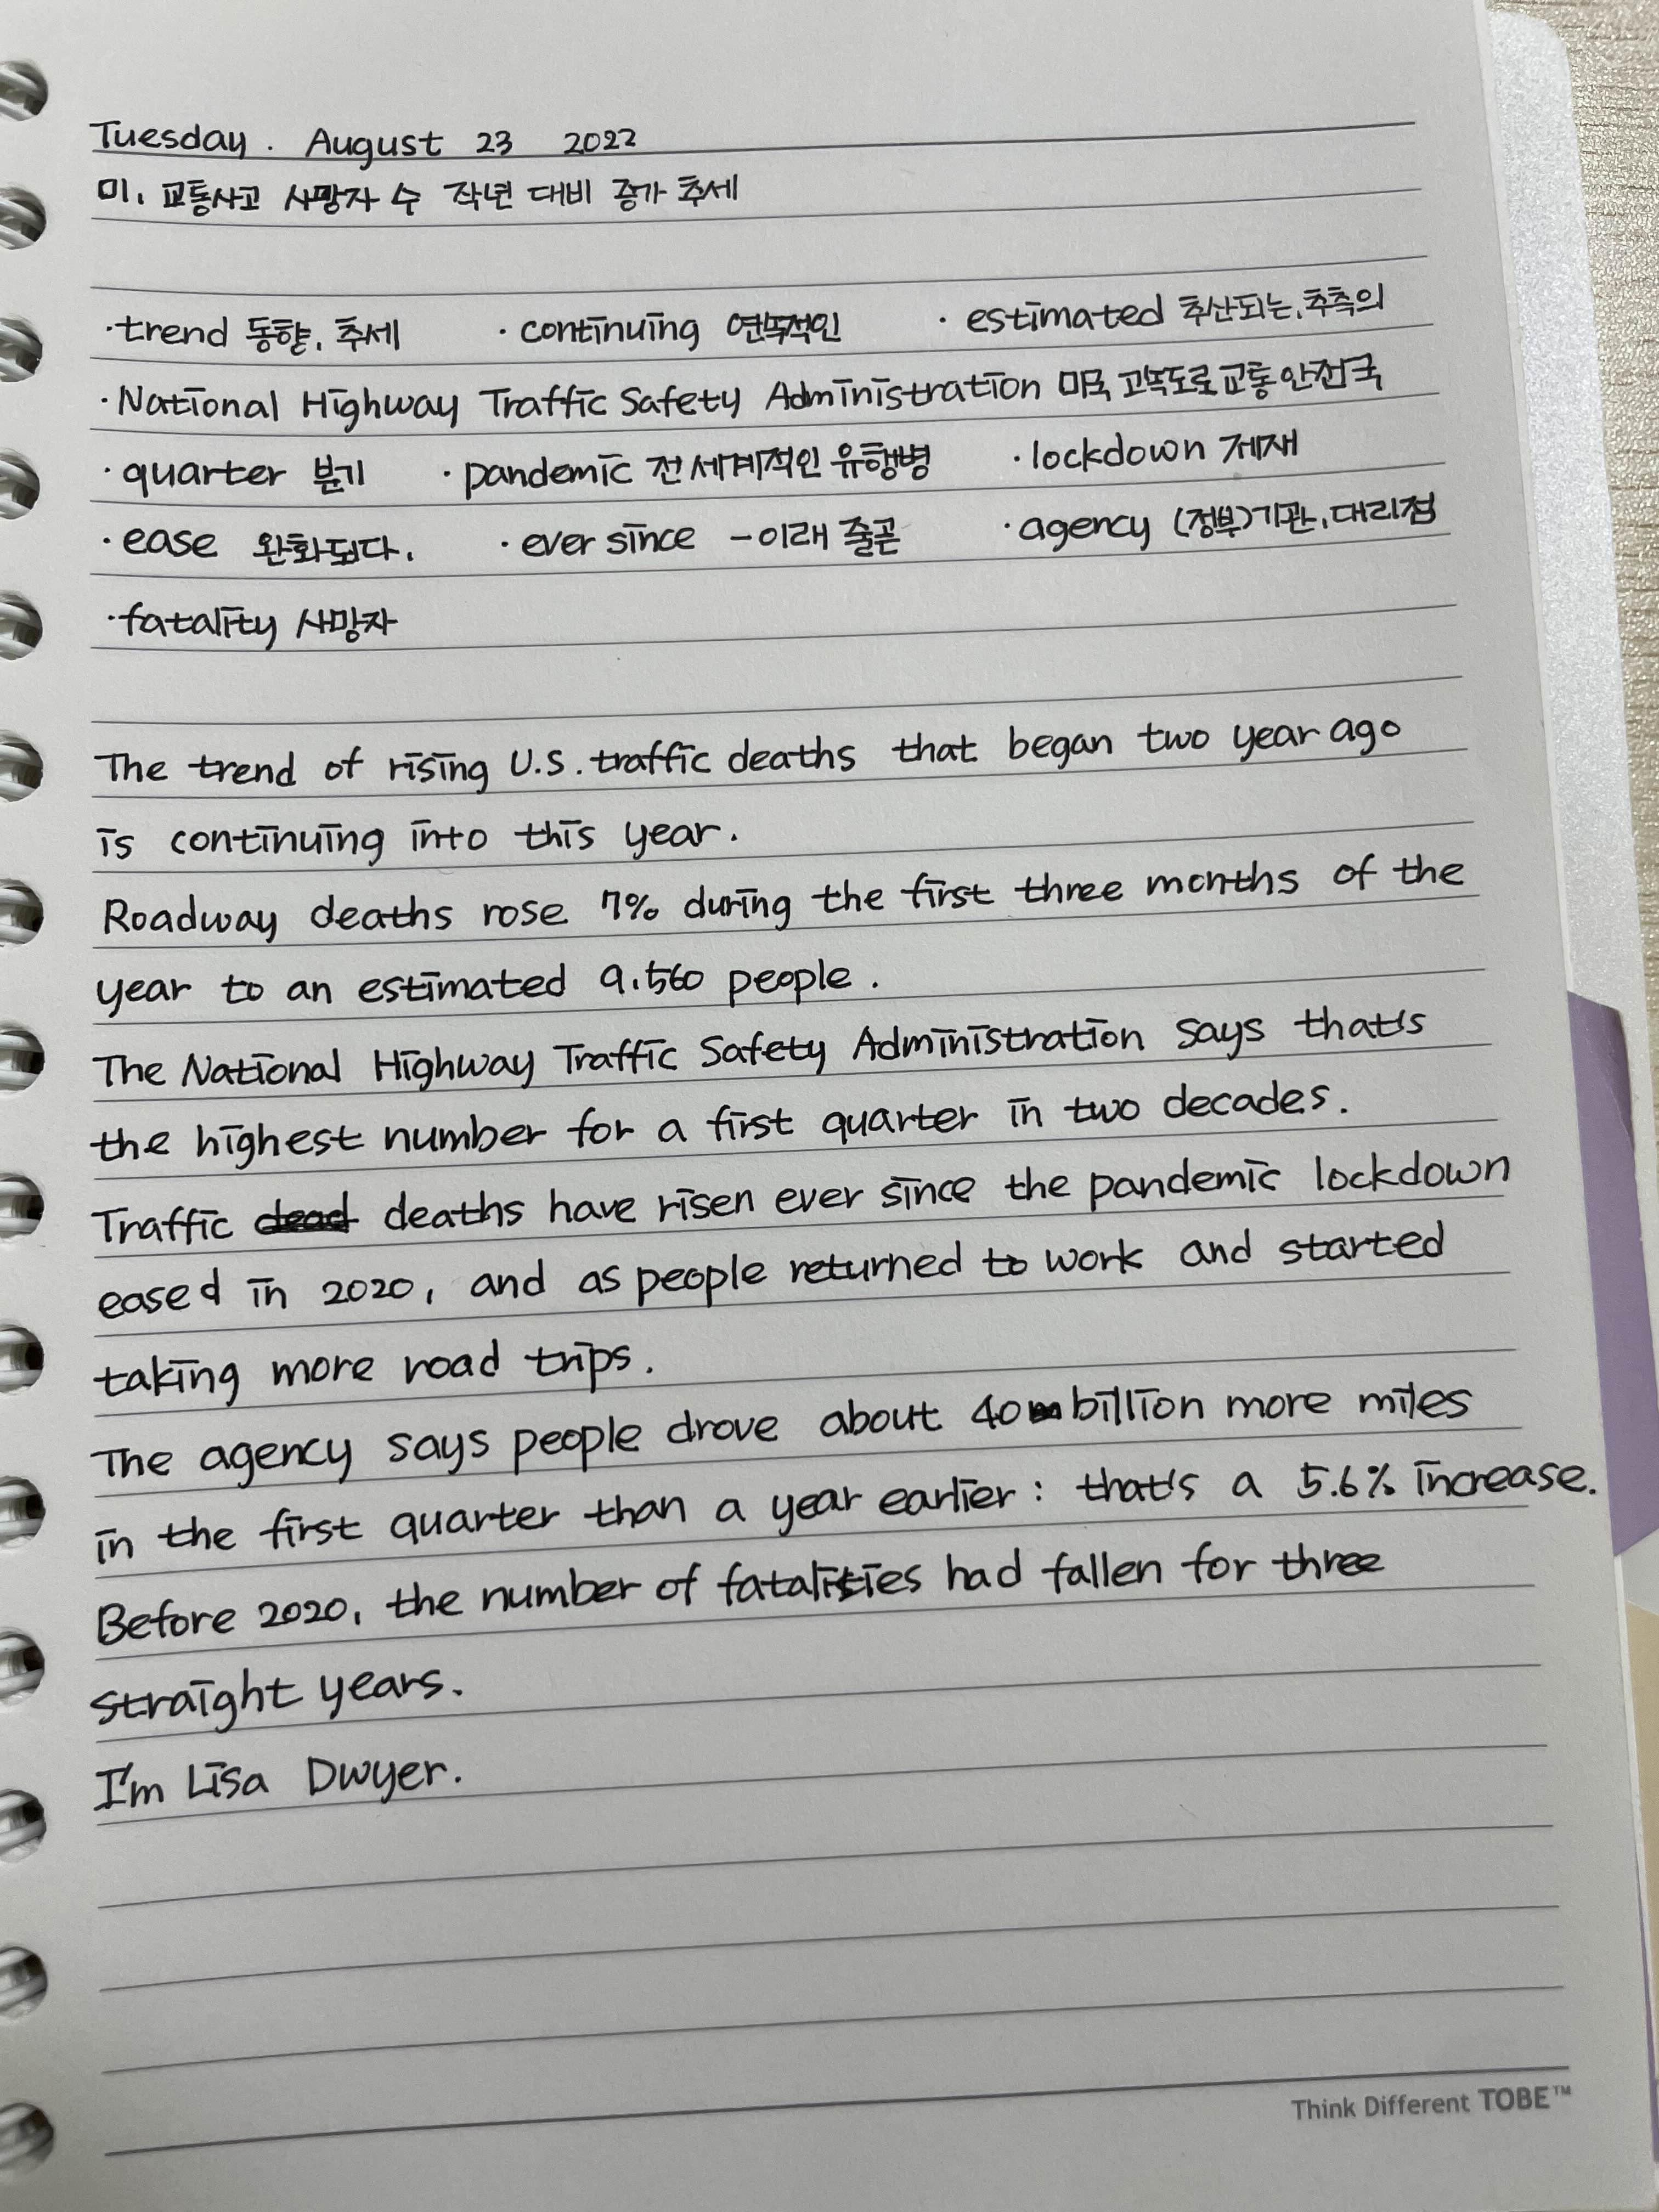 Tuesday. August 23 2022
미, 교통사고 사망자 수 작년 대비 증가 추세
·trend 동향, 추세 ·continuing 연속적인 ·estimated 추산되는, 추측의
·National Highway Traffic Safety Administration 미국 고속도로교통안전국
·quarter 분기 ·pandemic 전세계적인 유행병 ·lockdown 제재
·ease 완화되다. ·ever since -이래 줄곧 ·agency (정부)기관, 대리점
·fatality 사망자
The trend of rising U.S. traffic deaths that began two year ago
is continuing into this year.
Roadway deaths rose 7% during the first three months of the
year to an estimated 9,560 people.
The National Highway Traffic Safety Administration says that's
the highest number for a first quarter in two decades.
Traffic dead deaths have risen ever since the pandemic lockdown
eased in 2020, and as people returned to work and started
taking more road trips.
The agency says people drove about 40 billion more miles
in the first quarter than a year earlier: that's a 5.6% increase.
Before 2020, the number of fatalities had fallen for three
straight years.
I'm Lisa Dwyer.
Think Different TOBE™